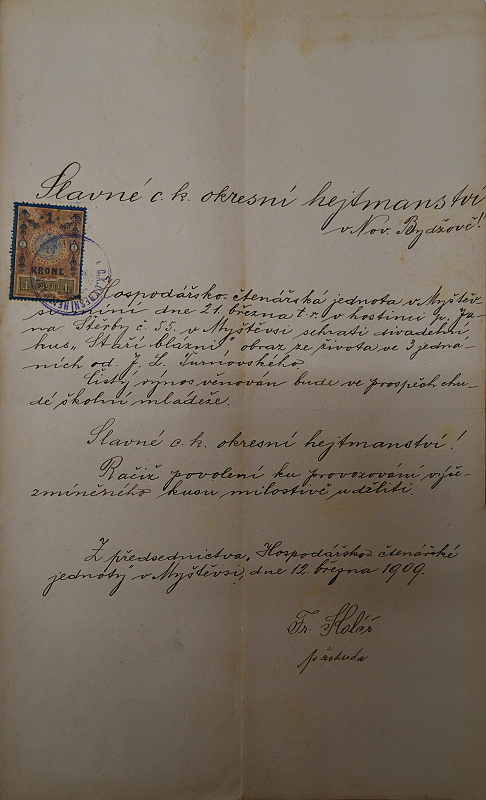 Slavné c. k. okresní hejtmanství
v Nov. Bydžově!
1
KRONE
1 1
Hospodářsko-čtenářská jednota v Myštěv-
si míní dne 21. března t. r. v hostinci p. Ja-
na Štěrby č. 55. v Myštěvsi sehrati divadelní
kus „Staří blázni" obraz ze života ve 3 jedná-
ních od J. L. Turnovského.
Čistý výnos věnován bude ve prospěch chu-
dé školní mládeže.
Slavné c. k. okresní hejtmanství!
Račiž povolení ku provozování výše-
zmíněného kusu milostivě uděliti.
Z předsednictva „Hospodářsko-čtenářské
jednoty" v Myštěvsi, dne 12. března 1909.
Fr.
předseda